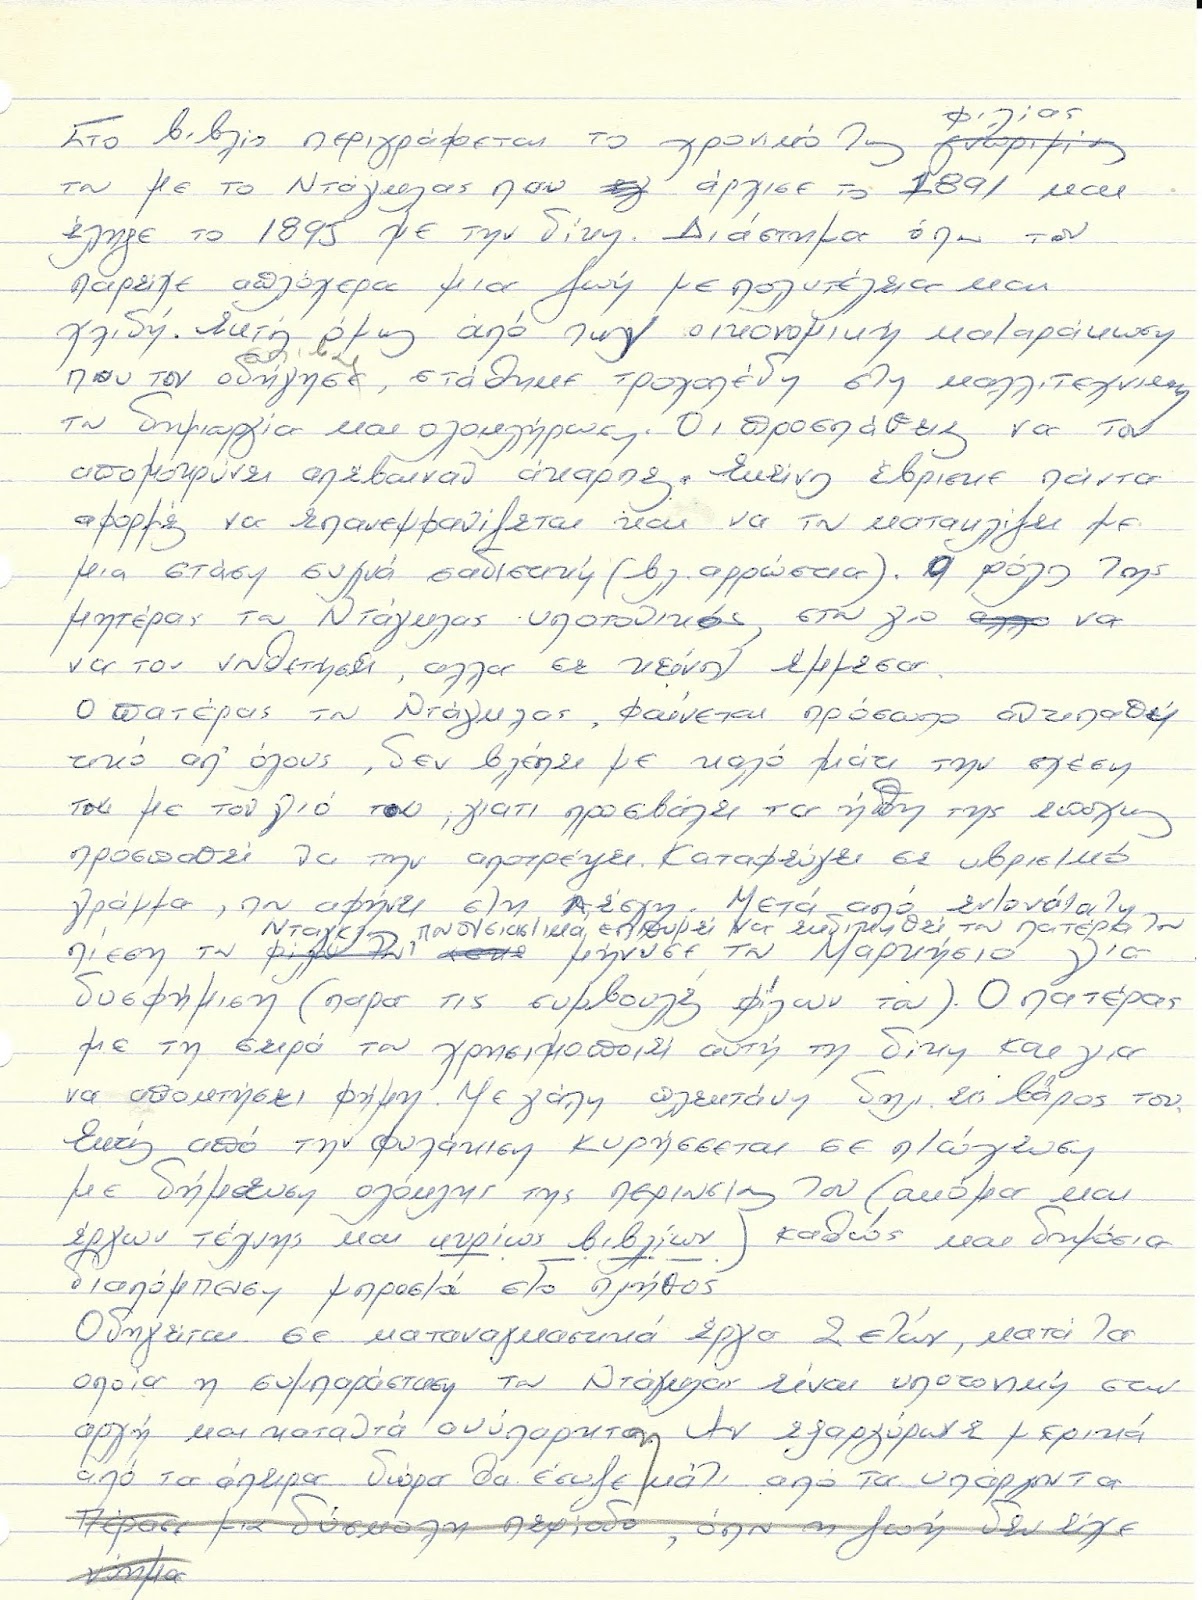 φιλίας
Στο βιβλίο περιγράφεται το χρονικό της γνωριμίας
του με το Ντάγκλας που άρχισε το 1891 και
έληξε το 1895 με την δίκη. Διάστημα όπου του
παρείχε απλόχερα μια ζωή με πολυτέλεια και
χλιδή. Εκτός όμως από την οικονομική καταράκωση
που τον οδήγησε, στάθηκε τροχοπέδη στη καλλιτεχνική
του δημιουργία και ολοκλήρωση. Οι προσπάθειες να τον
απομακρύνει απέβαιναν άκαρπες. Εκείνος έβρισκε πάντα
αφορμές να επανεμφανίζεται και να τον κατακλίζει με
μια στάση συχνά σαδιστική (βλ. αρρώστια). Ο ρόλος της
μητέρας του Ντάγκλας υποτονικός, στον γιο αλλο να
να τον νουθετήσει, αλλα σε κείνον έμμεσα.
Ο πατέρας του Ντάγκλας, φαίνεται πρόσωπο αντιπαθη
τικό απ' όλους, δεν βλέπει με καλό μάτι την σχέση
του με τον γιό του, γιατι προσβάλει τα ήθη της εποχης
προσπαθεί να την αποτρέψει. Καταφεύγει σε υβριστικό
γράμμα, που αφήνει στη Λέσχη. Μετά από εντονότατη
Ντάγκλας που ουσιαστικα, επιθυμεί να εκδικηθεί τον πατέρα του
πίεση του φίλου του μήνυσε τον Μαρκήσιο για
δυσφήμιση (παρα τις συμβουλές φίλων του). Ο πατέρας
με τη σειρά του χρησιμοποιεί αυτή τη δίκη και για
να αποκτήσει φήμη. Μεγάλη πλεκτάνη δηλ. εις βάρος του.
Εκτός από την φυλάκιση κυρήσσεται σε πτώχευση
με δήμευση ολόκληρης της περιουσίας του (ακόμα και
έργων τέχνης και κυρίως βιβλίων) καθώς και δημόσια
διαπόμπευση μπροστά στο πλήθος
Οδηγείται σε καταναγκαστικά έργα 2 ετών, κατά τα
οποία η συμπαράσταση του Ντάγκλας είναι υποτονική στην
αρχή και κατόπιν ανύπαρκτη. Αν εξαργύρωνε μερικά
από τα άπειρα δώρα θα έσωζε κάτι από τα υπάρχοντα
Πέρασε μια δύσκολη περίοδο, όπου η ζωή δεν είχε
νόημα